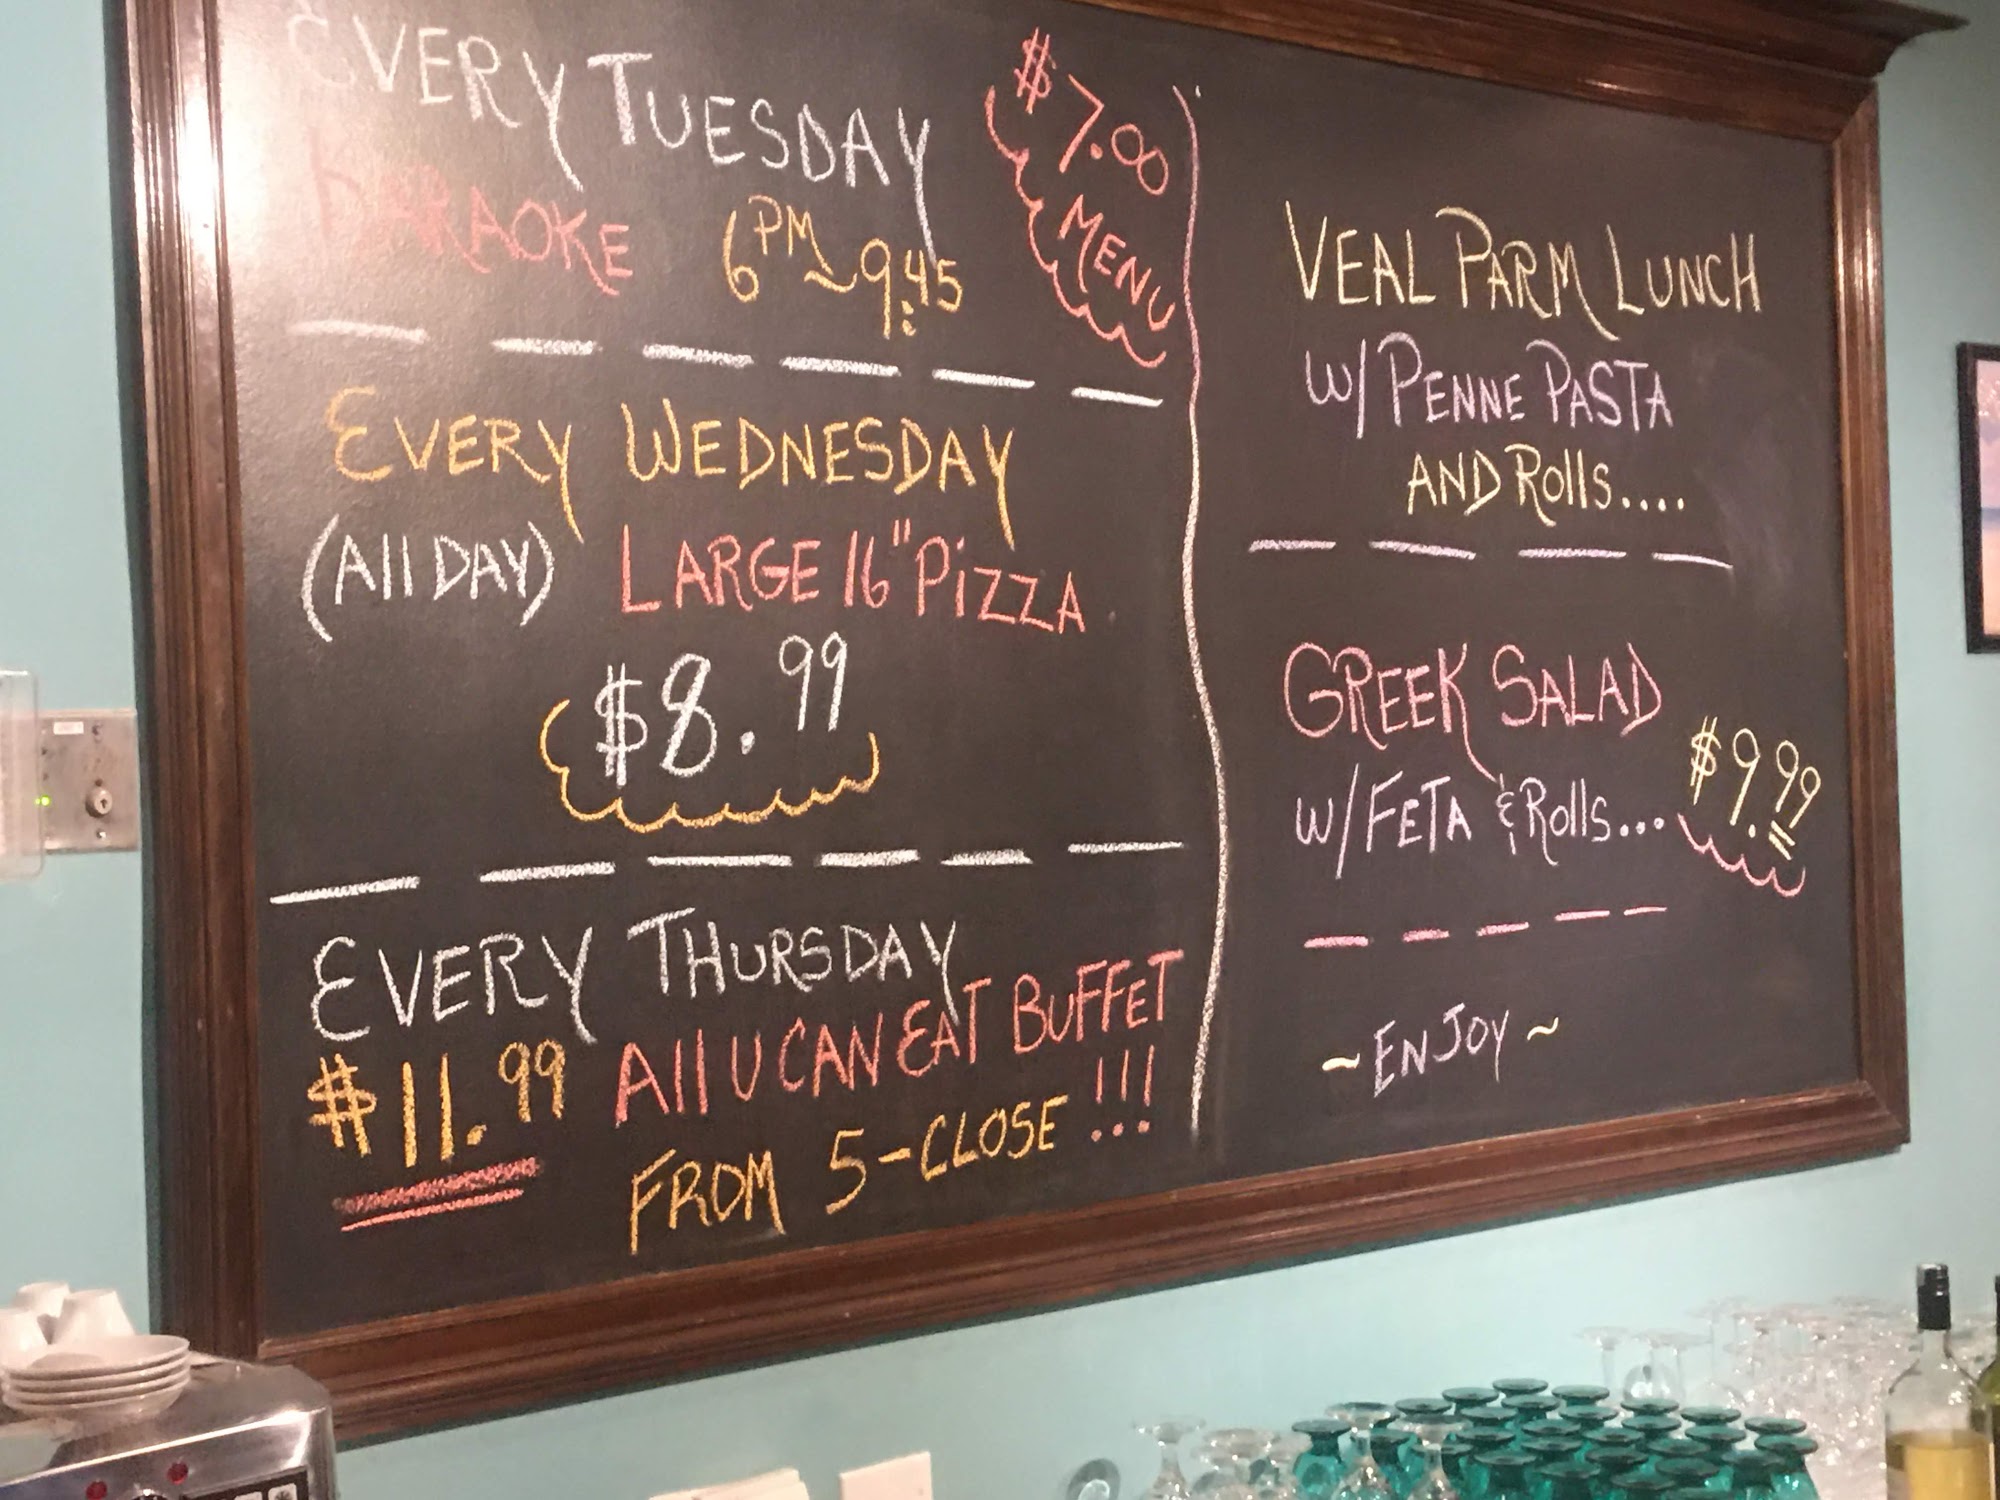 EVERY TUESDAY
KARAOKE 6PM~9:45
$7.00
MENU
EVERY WEDNESDAY
(All DAY) LARGE 16" PiZZA
$8.99
EVERY THURSDAY
$11.99 All U CAN EAT BUFFET
FROM 5-CLOSE !!!
VEAL PARM LUNCH
w/ PENNE PASTA
AND Rolls....
GREEK SALAD
w/ FETA & Rolls... $9.99
~ ENJOY ~